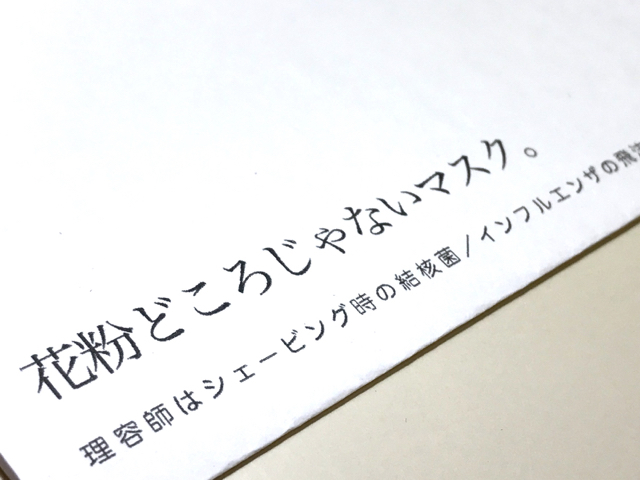 花粉どころじゃないマスク。
理容師はシェービング時の結核菌/インフルエンザの飛沫